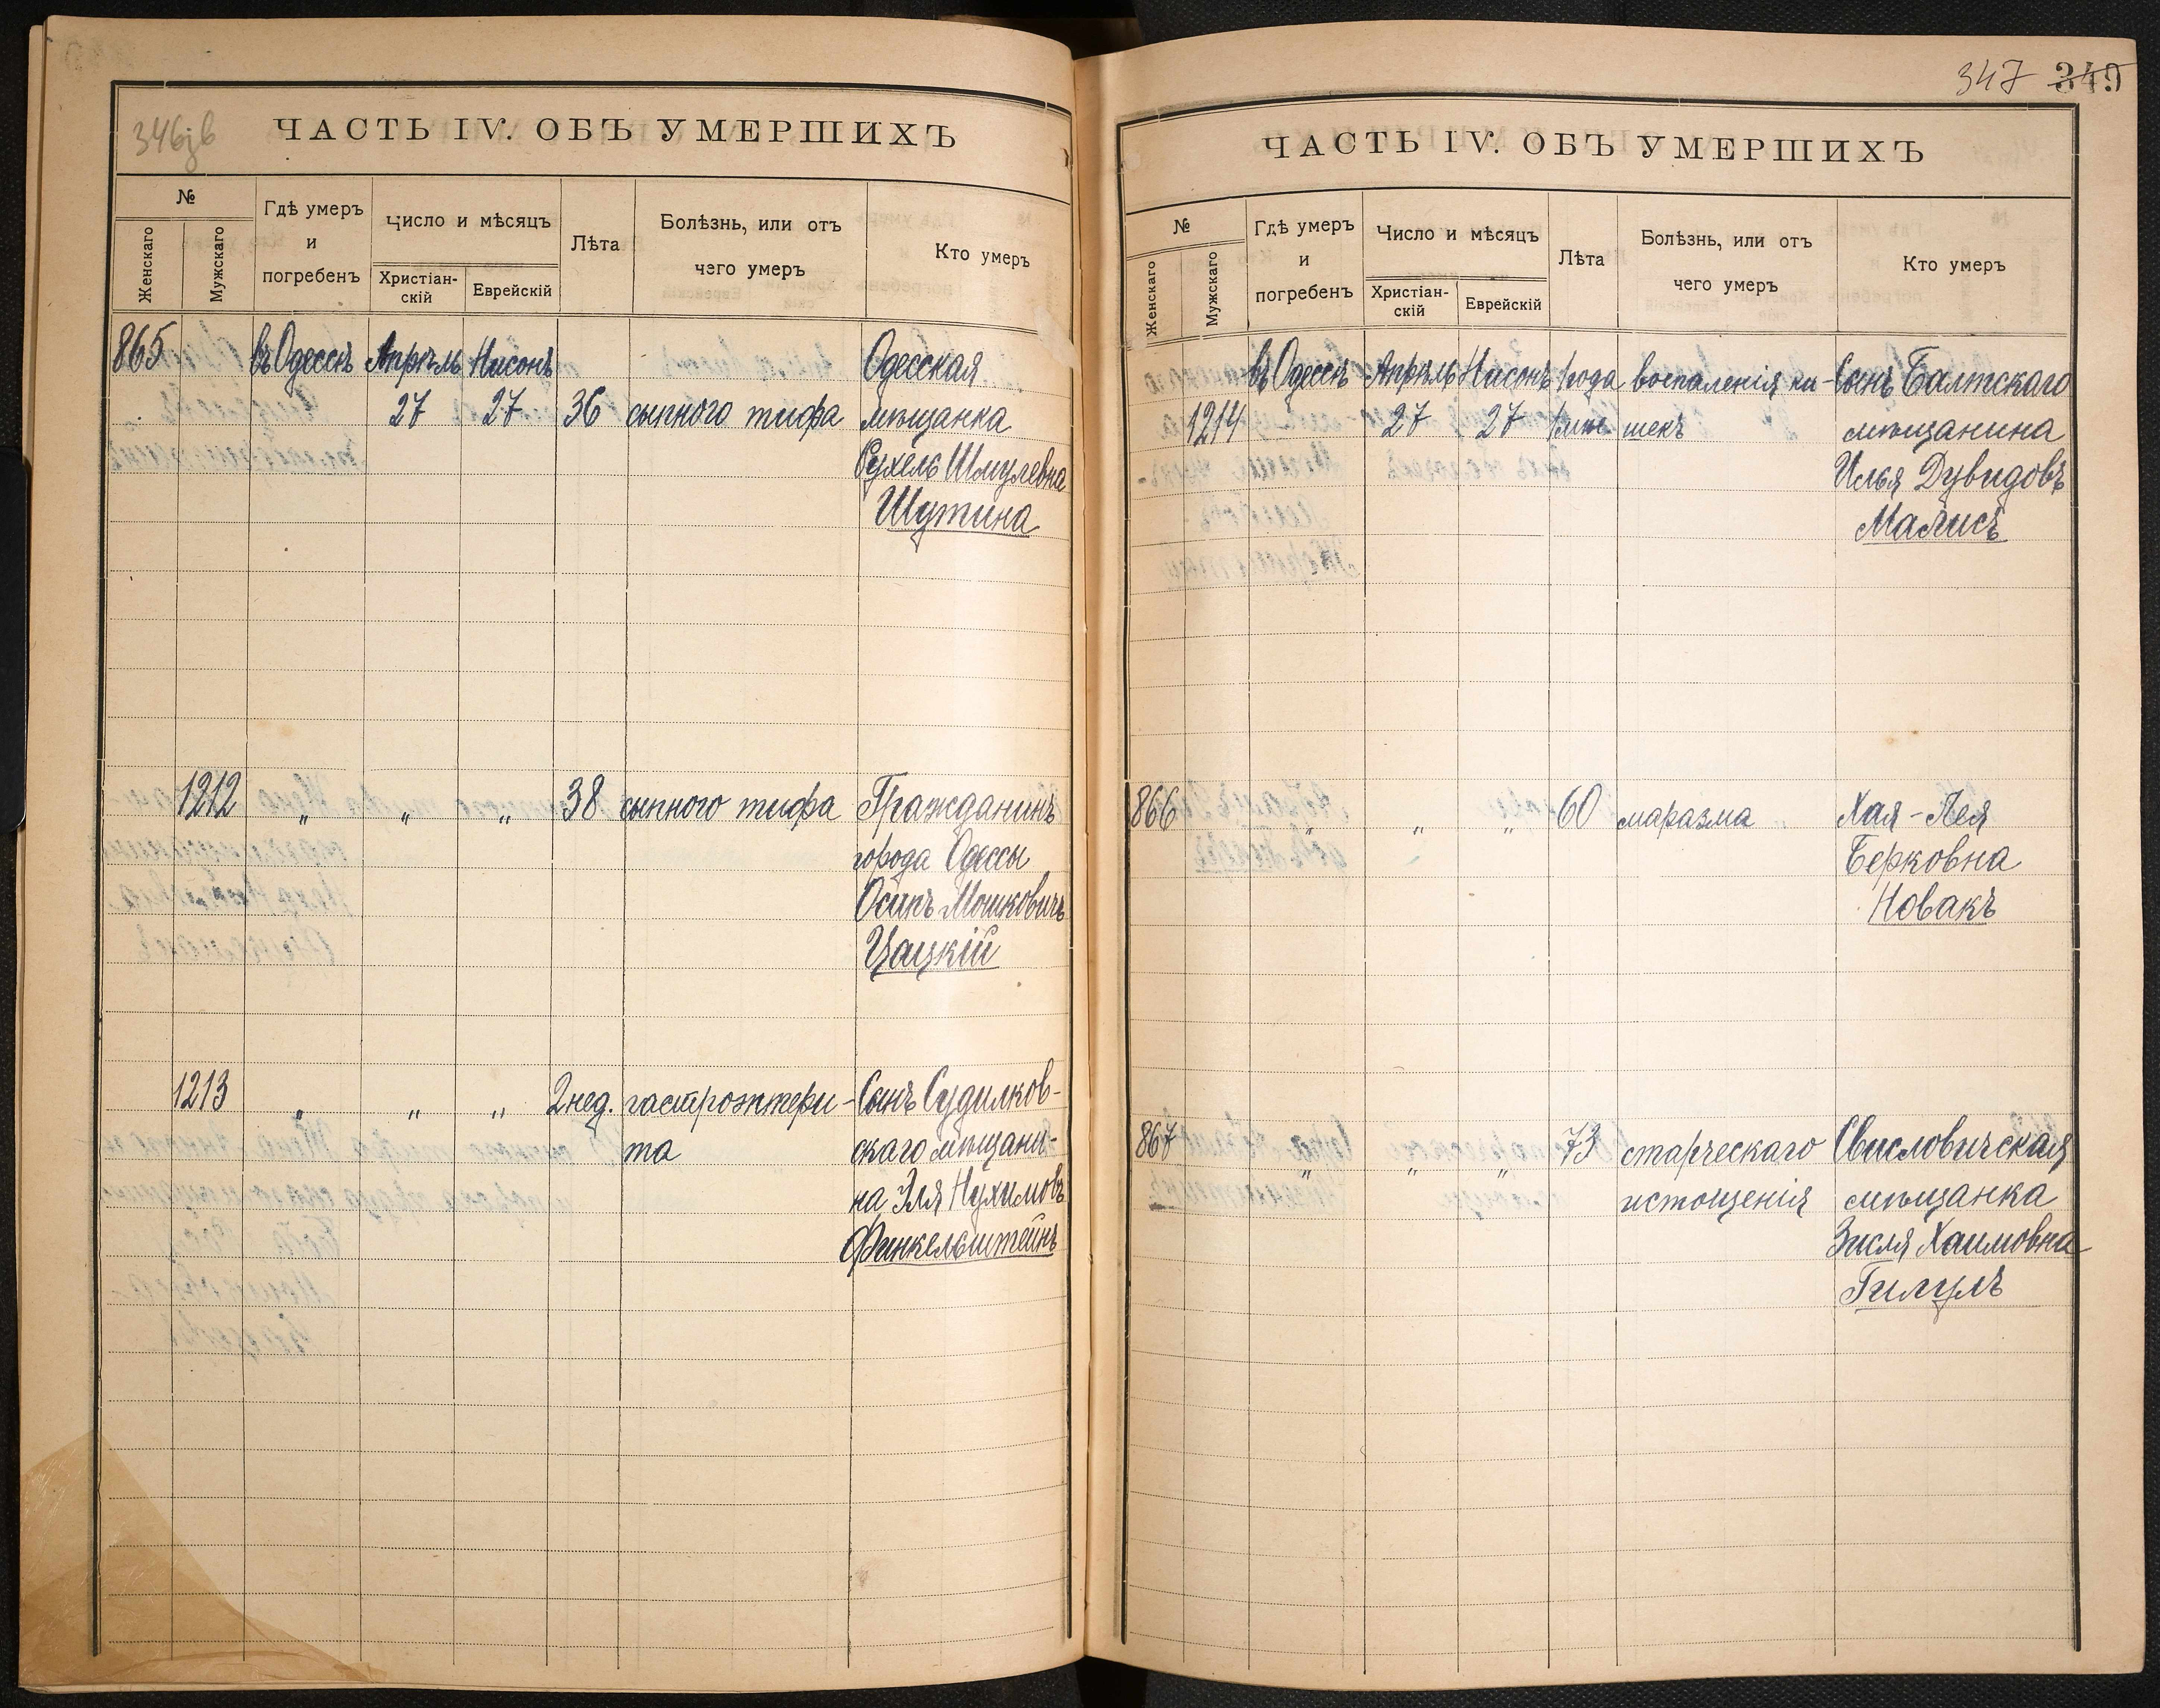 346зв
ЧАСТЬ IV. ОБЪ УМЕРШИХЪ
№
Женскаго
Мужскаго
Гдѣ умеръ
и
погребенъ
Число и мѣсяцъ
Христіан-
скій
Еврейскій
Лѣта
Болѣзнь, или отъ
чего умеръ
Кто умеръ
865 въ Одессѣ Апрѣль Нисонъ Одесская
27 27 36 сыпного тифа мѣщанка
Рухель Шмулевна
Шутина
1212 " " " 38 сыпного тифа Гражданинъ
города Одессы
Осипъ Мошковичъ
Цацкій
1213 " " " 2 нед. гастроэнтери- Сынъ Судилков-
та скаго мѣщани-
на Эля Нухимовъ
Финкельштейнъ
347 349
ЧАСТЬ IV. ОБЪ УМЕРШИХЪ
№
Женскаго
Мужскаго
Гдѣ умеръ
и
погребенъ
Число и мѣсяцъ
Христіан-
скій
Еврейскій
Лѣта
Болѣзнь, или отъ
чего умеръ
Кто умеръ
въ Одессѣ Апрѣль Нисонъ 1 года воспаленія ки- Сынъ Балтскаго
1214 27 27 шекъ мѣщанина
Илья Дувидовъ
Малисъ
866 " " " 60 маразма Хая-Лея
Берковна
Новакъ
867 " " " 73 старческаго Свисловичская
истощенія мѣщанка
Зисля Хаимовна
Гилулъ